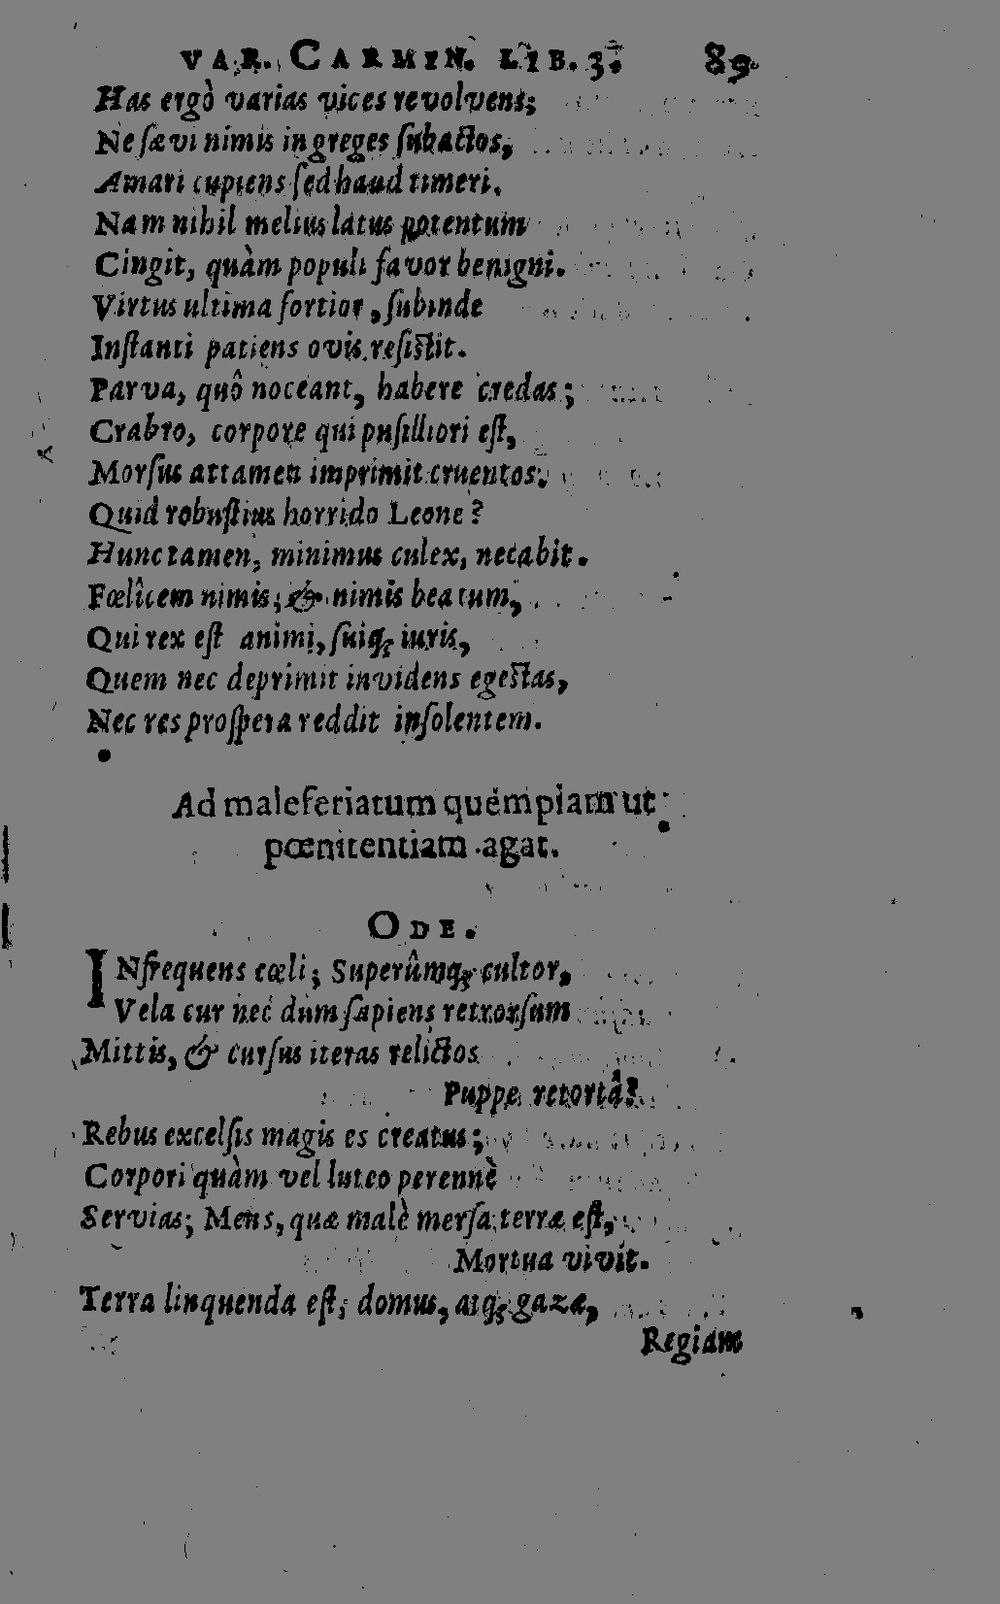 VAR. CARMIN. LIB. 3. 89
Has ergò varias vices revolvens;
Ne sævi nimis in greges subactos,
Amari cupiens sed haud timeri.
Nam nihil melius latus potentum
Cingit, quàm populi favor benigni.
Virtus ultima fortior, subinde
Instanti patiens ovis resistit.
Parva, quô noceant, habere credas;
Crabro, corpore qui pusilliori est,
Morsus attamen imprimit cruentos.
Quid robustius horrido Leone?
Hunc tamen, minimus culex, necabit.
Fœlîcem nimis; & nimis beatum,
Qui rex est animi, suiq; iuris,
Quem nec deprimit invidens egestas,
Nec res prospera reddit insolentem.
Ad maleferiatum quémpiam ut
pœnitentiam agat.
ODE.
INfrequens cœli; Superûmq; cultor,
Vela cur nec dum sapiens retrorsum
Mittis, & cursus iteras relictos
Puppe retortâ?
Rebus excelsis magis es creatus;
Corpori quàm vel luteo perennè
Servias; Mens, quæ malè mersa terræ est,
Mortua vivit.
Terra linquenda est; domus, atq; gaza,
Regiam